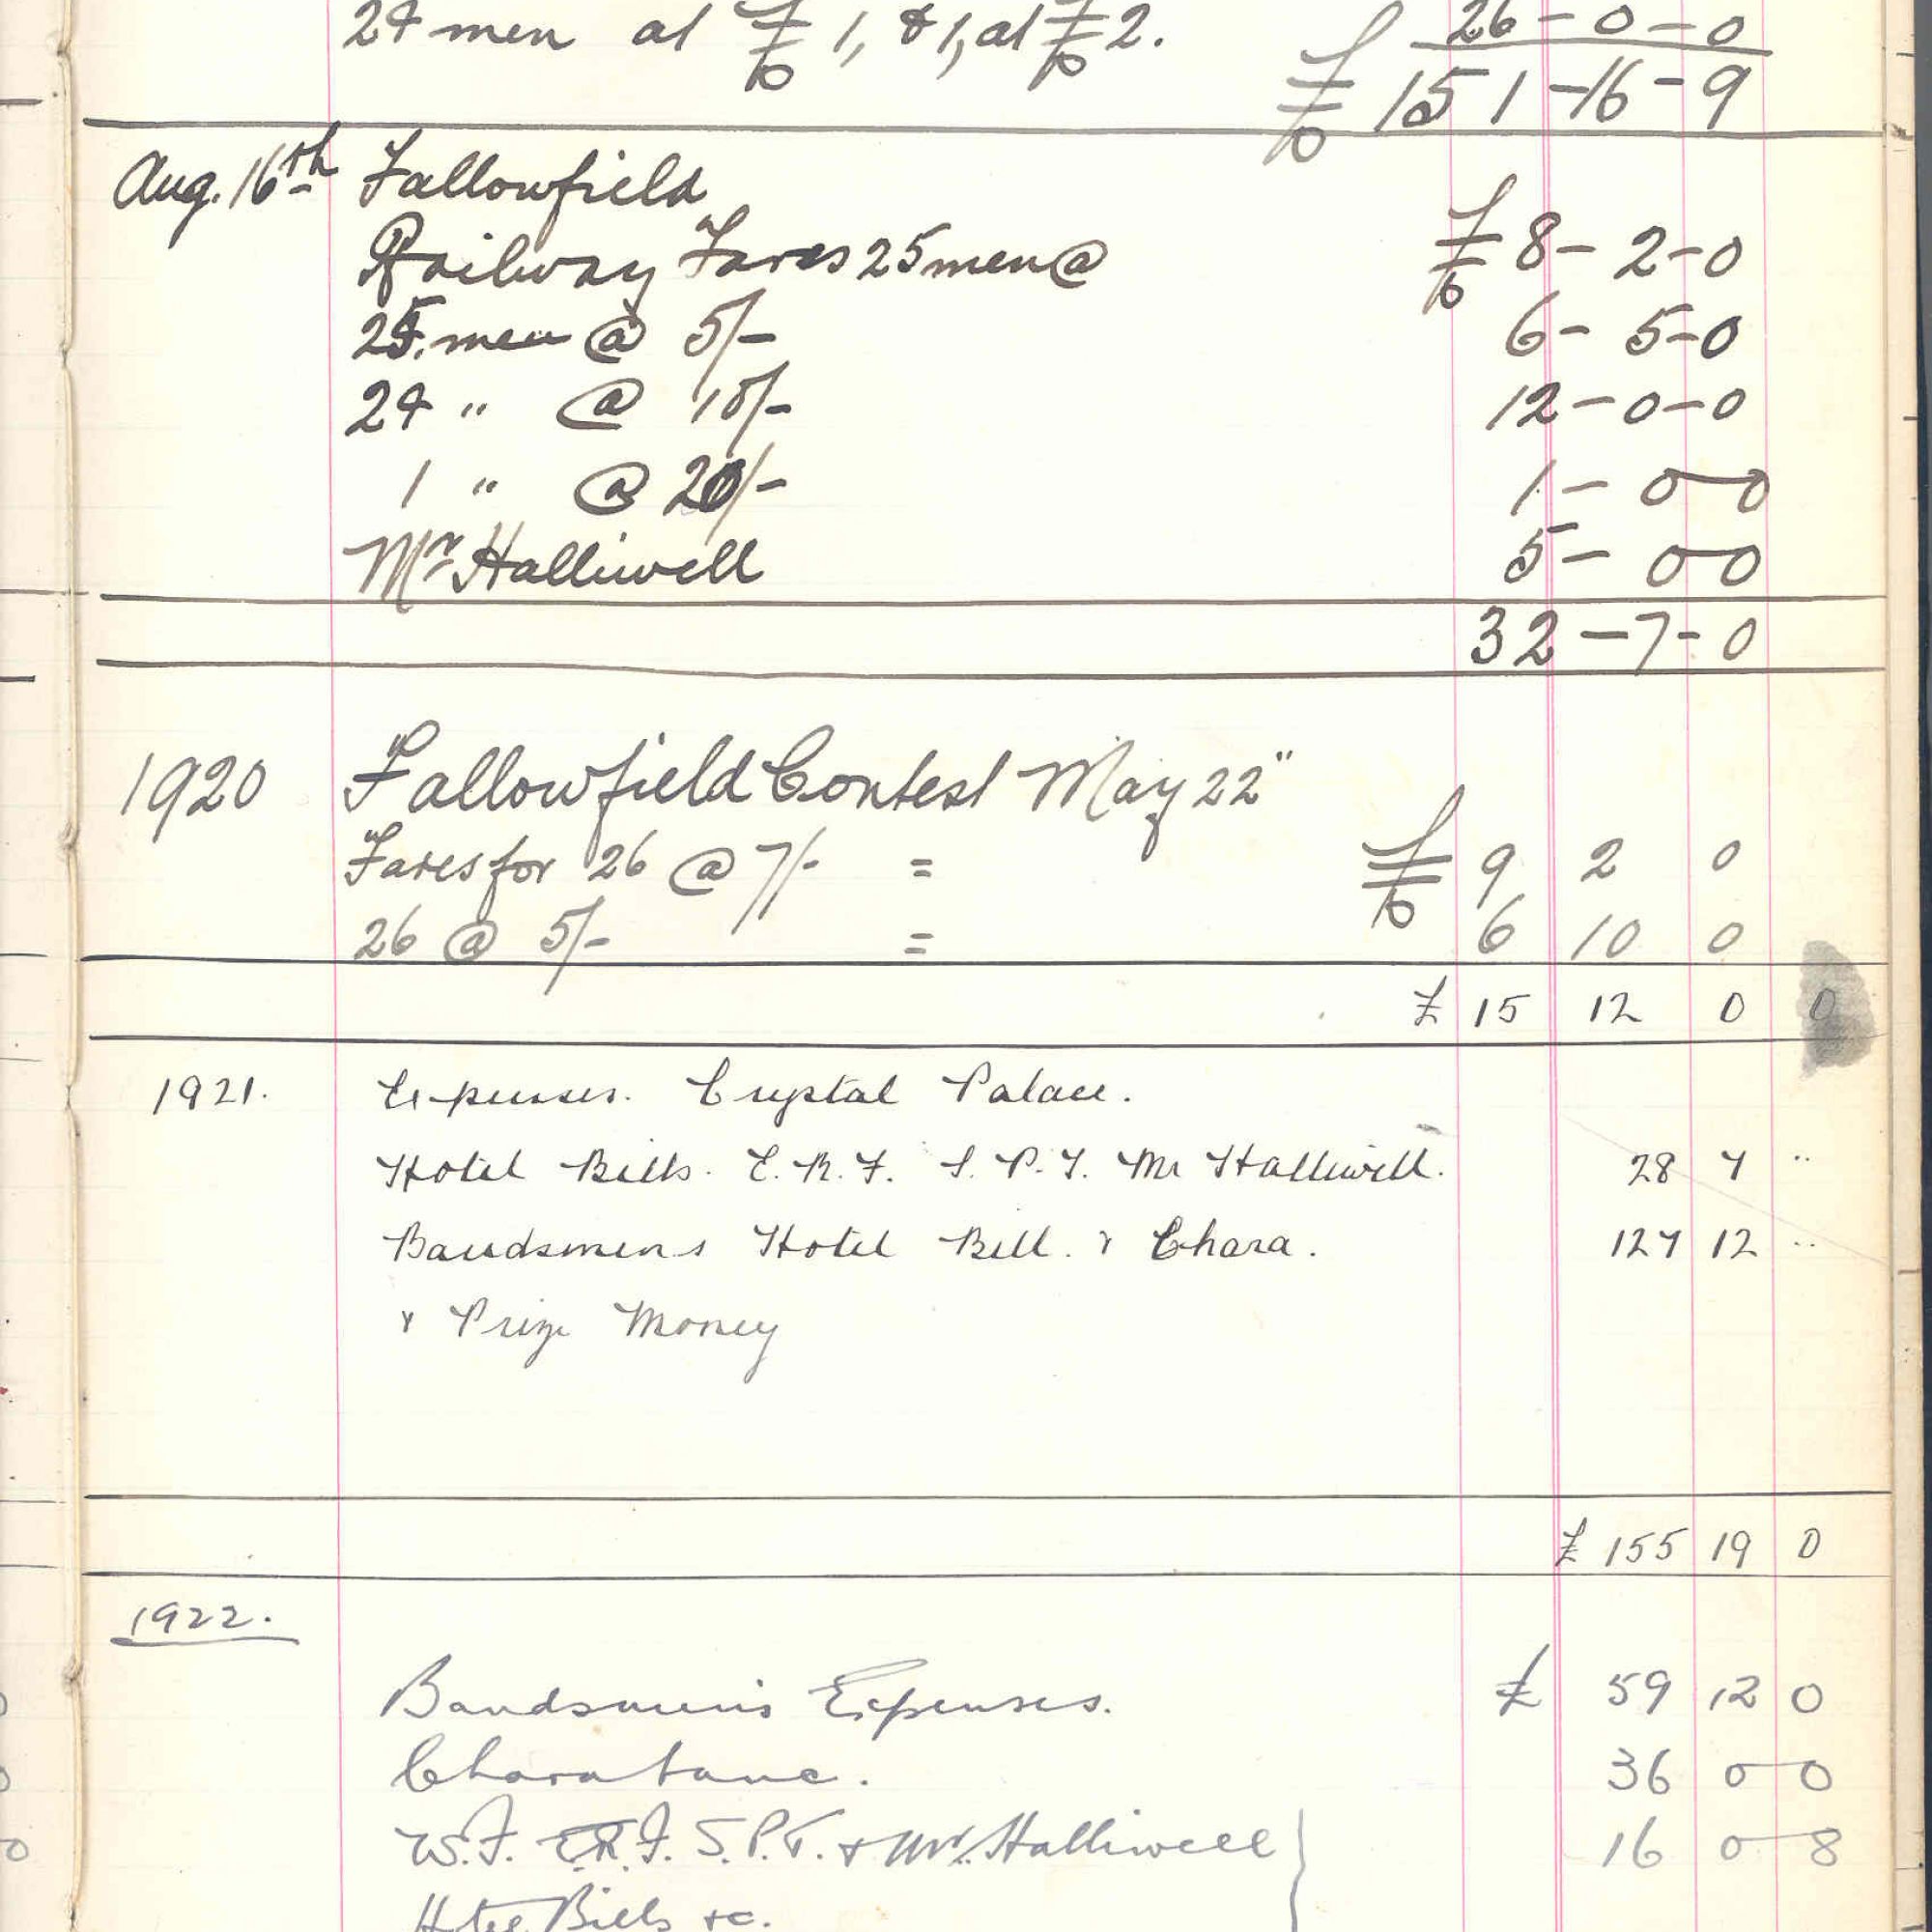 24 men at £ 1, & 1, at £ 2. 26 - 0 - 0
£ 151 - 16 - 9
Aug. 16th Fallowfield
Railway Fares 25 men @ £ 8 - 2 - 0
25 men @ 5/- 6 - 5 - 0
24 " @ 10/- 12 - 0 - 0
1 " @ 20/- 1 - 0 0
Mr Halliwell 5 - 0 0
32 - 7 - 0
1920 Fallowfield Contest May 22"
Fares for 26 @ 7/- = £ 9 2 0
26 @ 5/- = 6 10 0
£ 15 12 0 0
1921. Expenses. Crystal Palace.
Hotel Bills. E. R. F. S. P. F. Mr Halliwell. 28 7 "
Bandsmens Hotel Bill. & Chara. 127 12 "
& Prize Money
£ 155 19 0
1922.
Bandsmen's Expenses. £ 59 12 0
Charabanc. 36 0 0
W. F. E. R. F. S. P. F. & Mr. Halliwell 16 0 8
Hotel Bills &c.